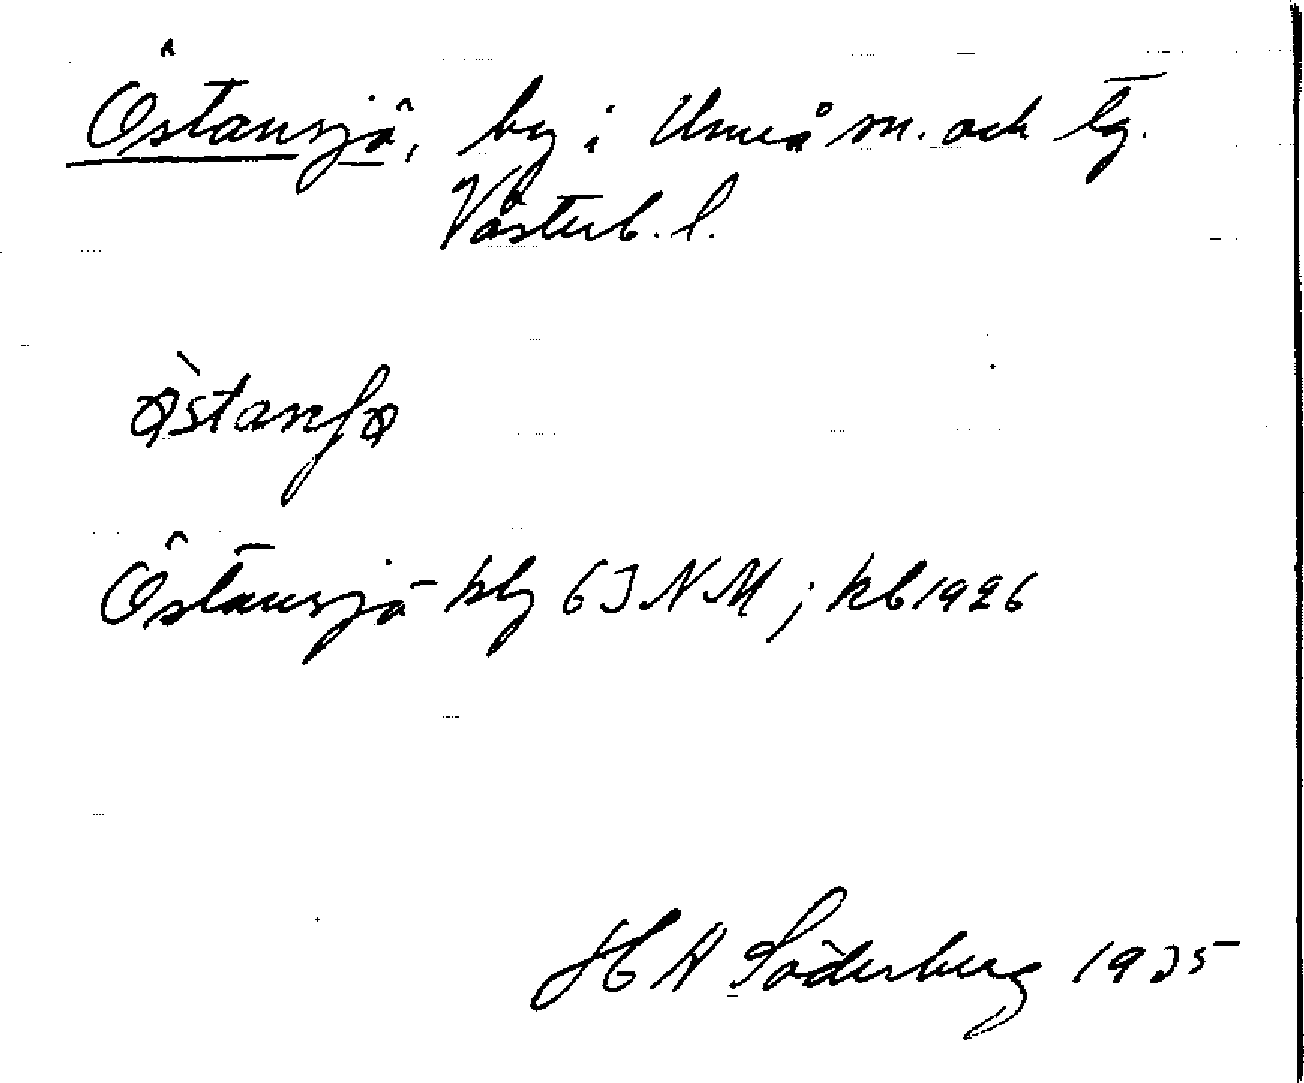 Östansjö, by i Umeå sn. och tg.
Västerb. l.
Östansjö kbg 63 NM; kb 1926
H A Söderberg 1935